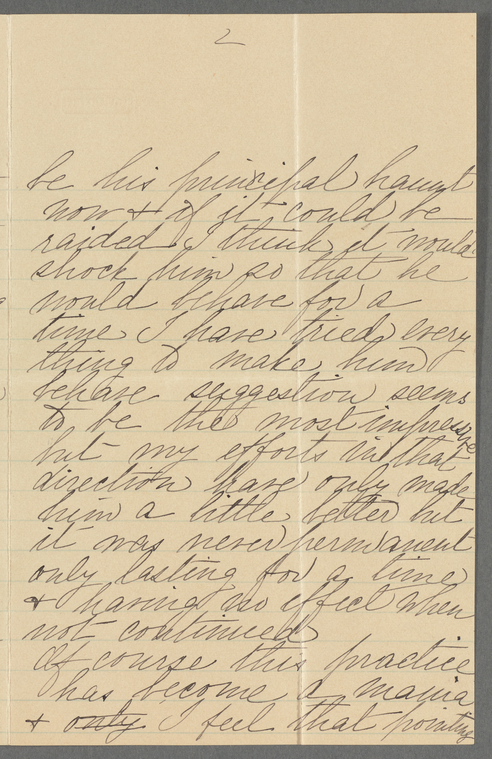 2
be his principal haunt
now & if it could be
raided I think it would
shock him so that he
would behave for a
time I have tried every
thing to make him
behave suggestion seems
to be the most impressive
but my efforts in that
direction have only made
him a little better but
it was never permanent
only lasting for a time
& having no effect when
not continued
Of course this practice
has become a mania
& only I feel that pointing